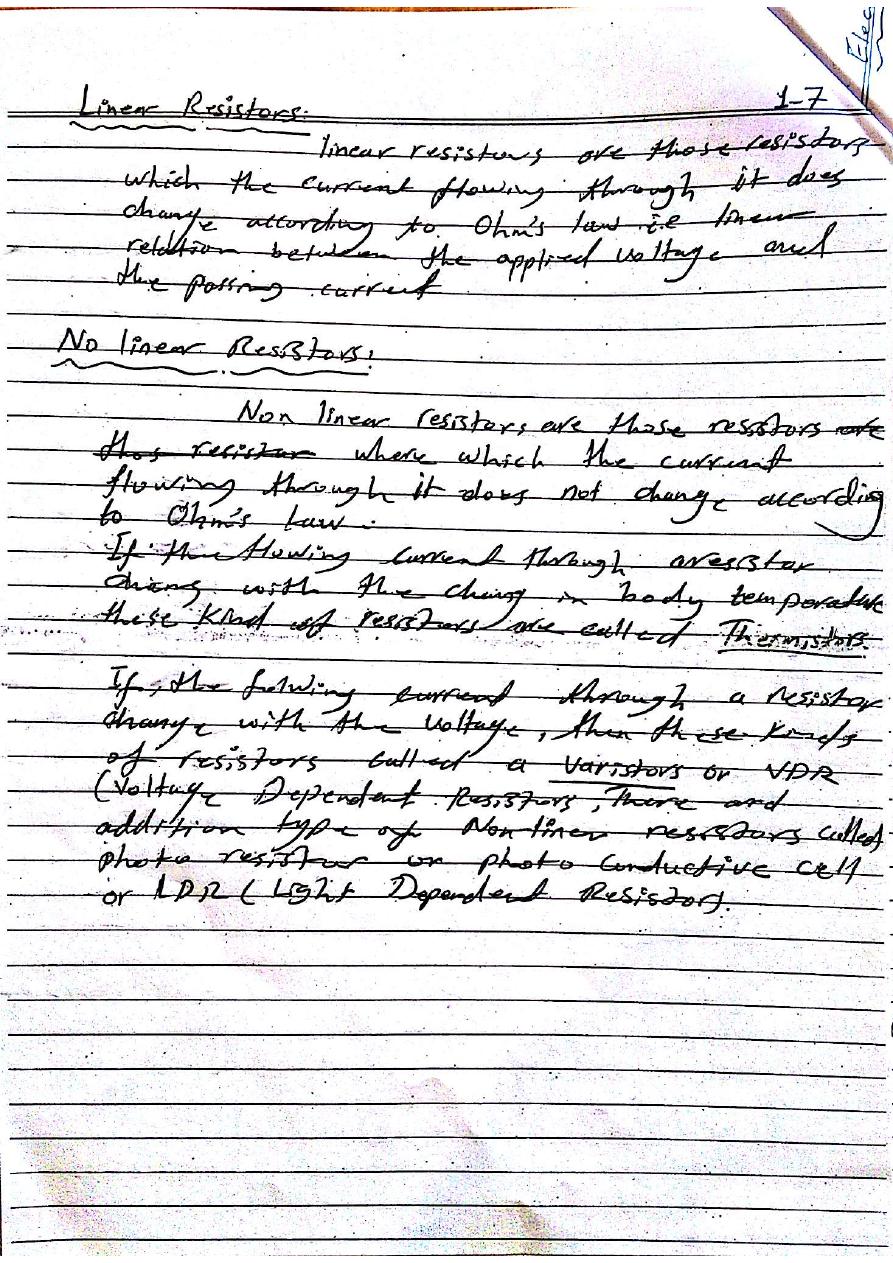 Elec
1-7
Linear Resistors:
linear resistors are those resistors
which the current flowing through it does
change according to Ohm's law i.e linear
relation between the applied voltage and
the passing current
No linear Resistors:
Non linear resistors are those resistors are
thos resistor where which the current
flowing through it does not change according
to Ohm's Law.
If the flowing current through aresistor
chang with the chang in body temperature
these Kind of resistors are called Thermistors.
If, the folwing current through a resistor
change with the voltage, then these Kinds
of resistors called a Varistors or VDR
(Voltage Dependent Resistors, There and
addition type of Non-liner resistors called
photo resistor or photo conductive cell
or LDR (Light Dependent Resistor).